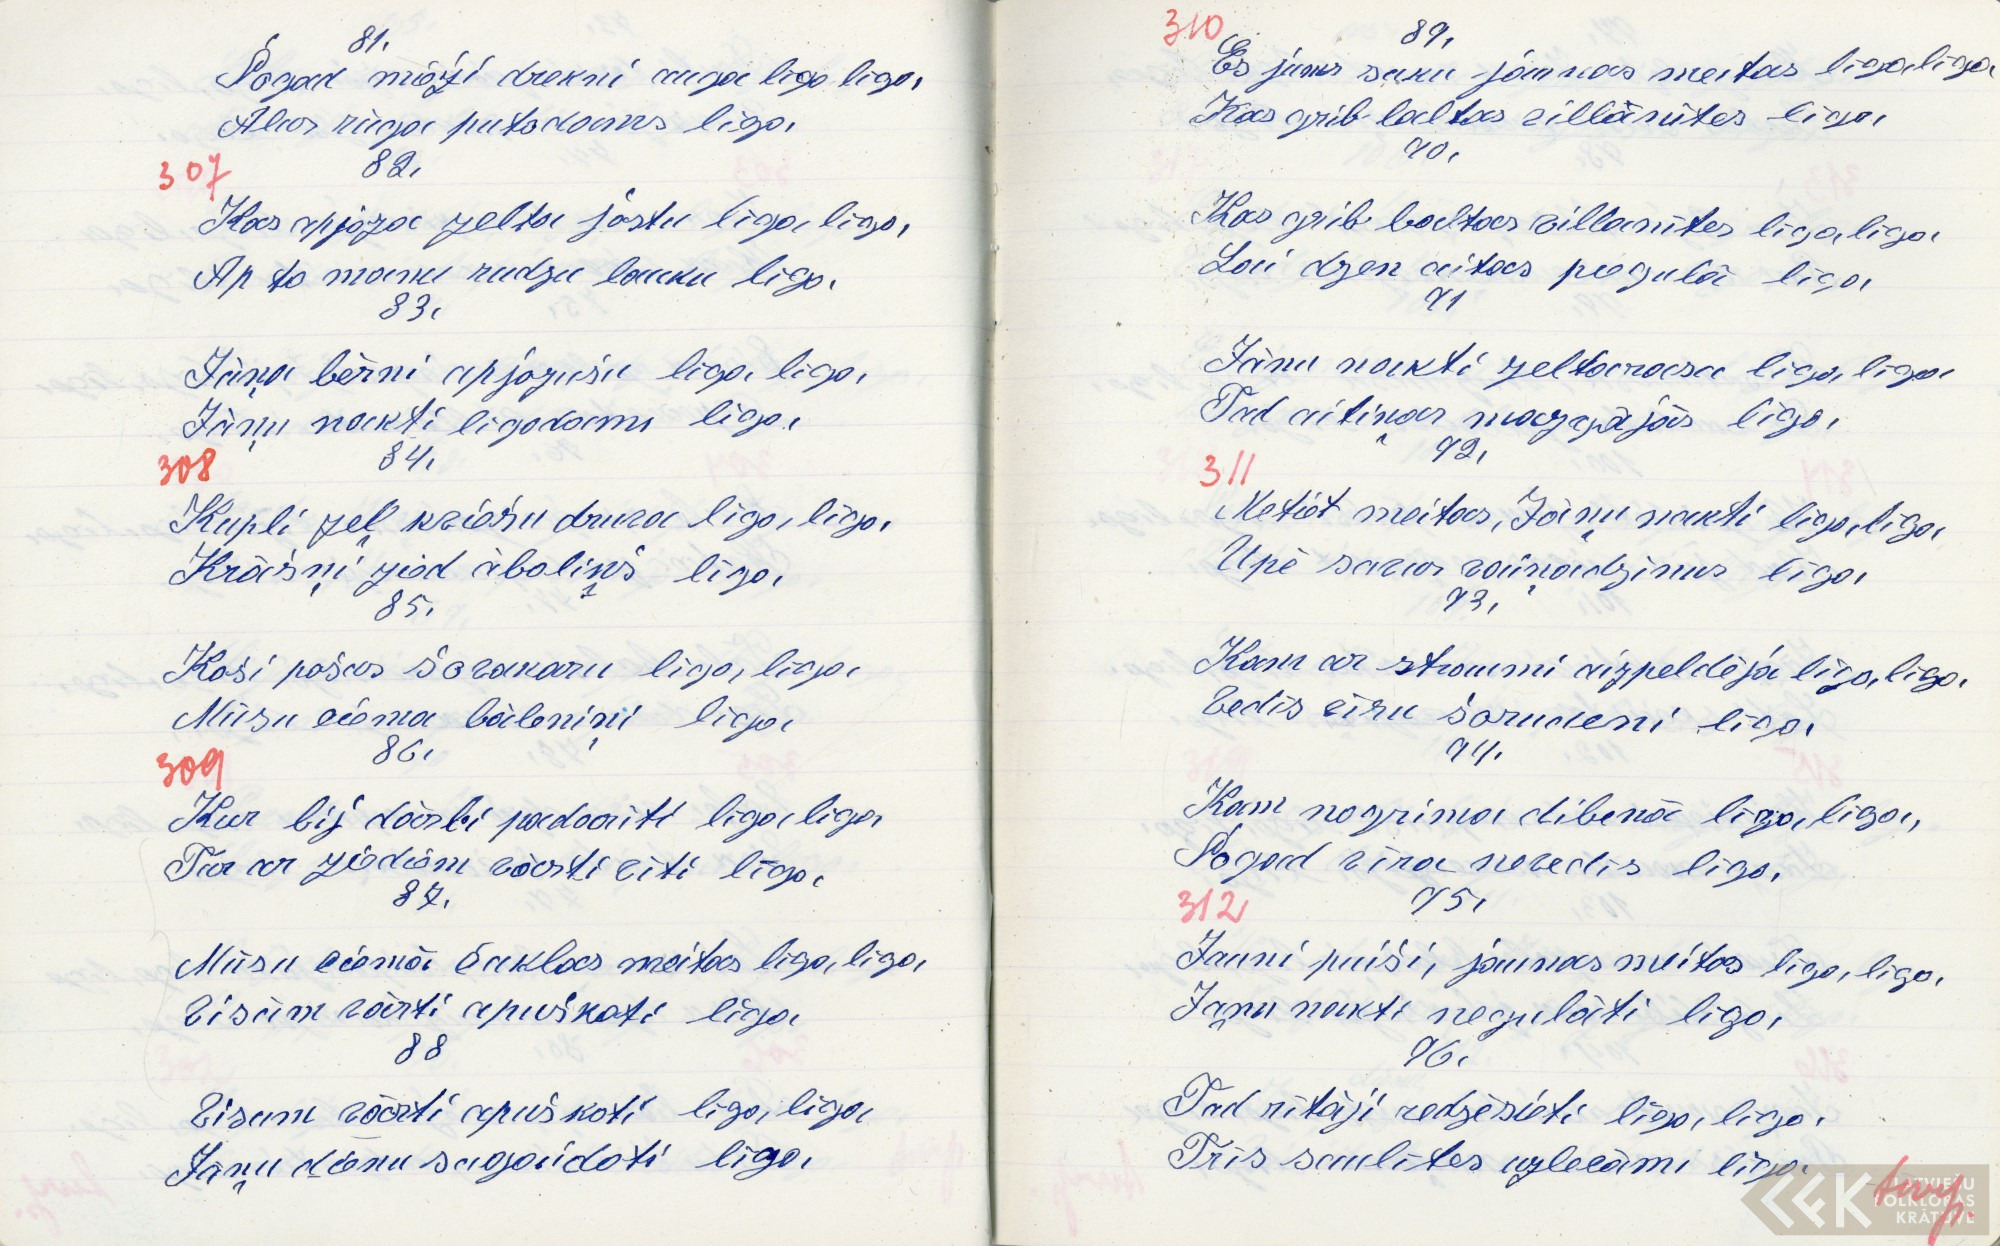 81.
Šogad mēži drekni auga līgo, līgo,
Alus rūga putodams līgo,
307
82.
Kas apjoza zelta jostu līgo, līgo,
Ap to manu rudzu lauku līgo.
83.
Jāņa bērni apjozuši līgo, līgo,
Jāņu nakti līgodami līgo.
308
84.
Kupli zeļ kviešu druva līgo, līgo,
Krāšņi zied āboliņš līgo,
85.
Koši pošas šovakaru līgo, līgo,
Mūsu ciema bāleniņi līgo,
309
86.
Kur bij dārbi padarīti līgo, līgo,
Tur ar ziediem vārti vīti līgo,
87.
Mūsu ciemā čaklas meitas līgo, līgo,
Visiem vārti apuškoti līgo,
88
Visiem vārti apuškoti līgo, līgo,
Jāņu dienu sagaidoti līgo,
310
89.
Es jums saku jaunas meitas līgo, līgo,
Kas grib baltas villānītes līgo,
90.
Kas grib baltas villanītes līgo, līgo
Lai dzen aitas pagulā līgo,
91
Jānu nakti zelta rasa līgo, līgo
Tad aitiņas mazgājās līgo,
311
92.
Metiet meitas, Jāņu nakti līgo, līgo,
Upē savus vaiņadziņus līgo,
93.
Kam ar straumi aizpeldēja līgo, līgo,
Vedīs vīru šorudeni līgo,
94.
Kam nogrima dibenā līgo, līgo,
Šogad vīra nevedīs līgo,
312
95.
Jauni puiši, jaunas meitas līgo, līgo,
Jaņu nakti neguliati līgo,
96.
Tad rītāji redzēsieti līgo, līgo,
Trīs saulītes uzlecami līgo.
turp.
LATVIEŠU
FOLKLORAS
KRĀTUVE